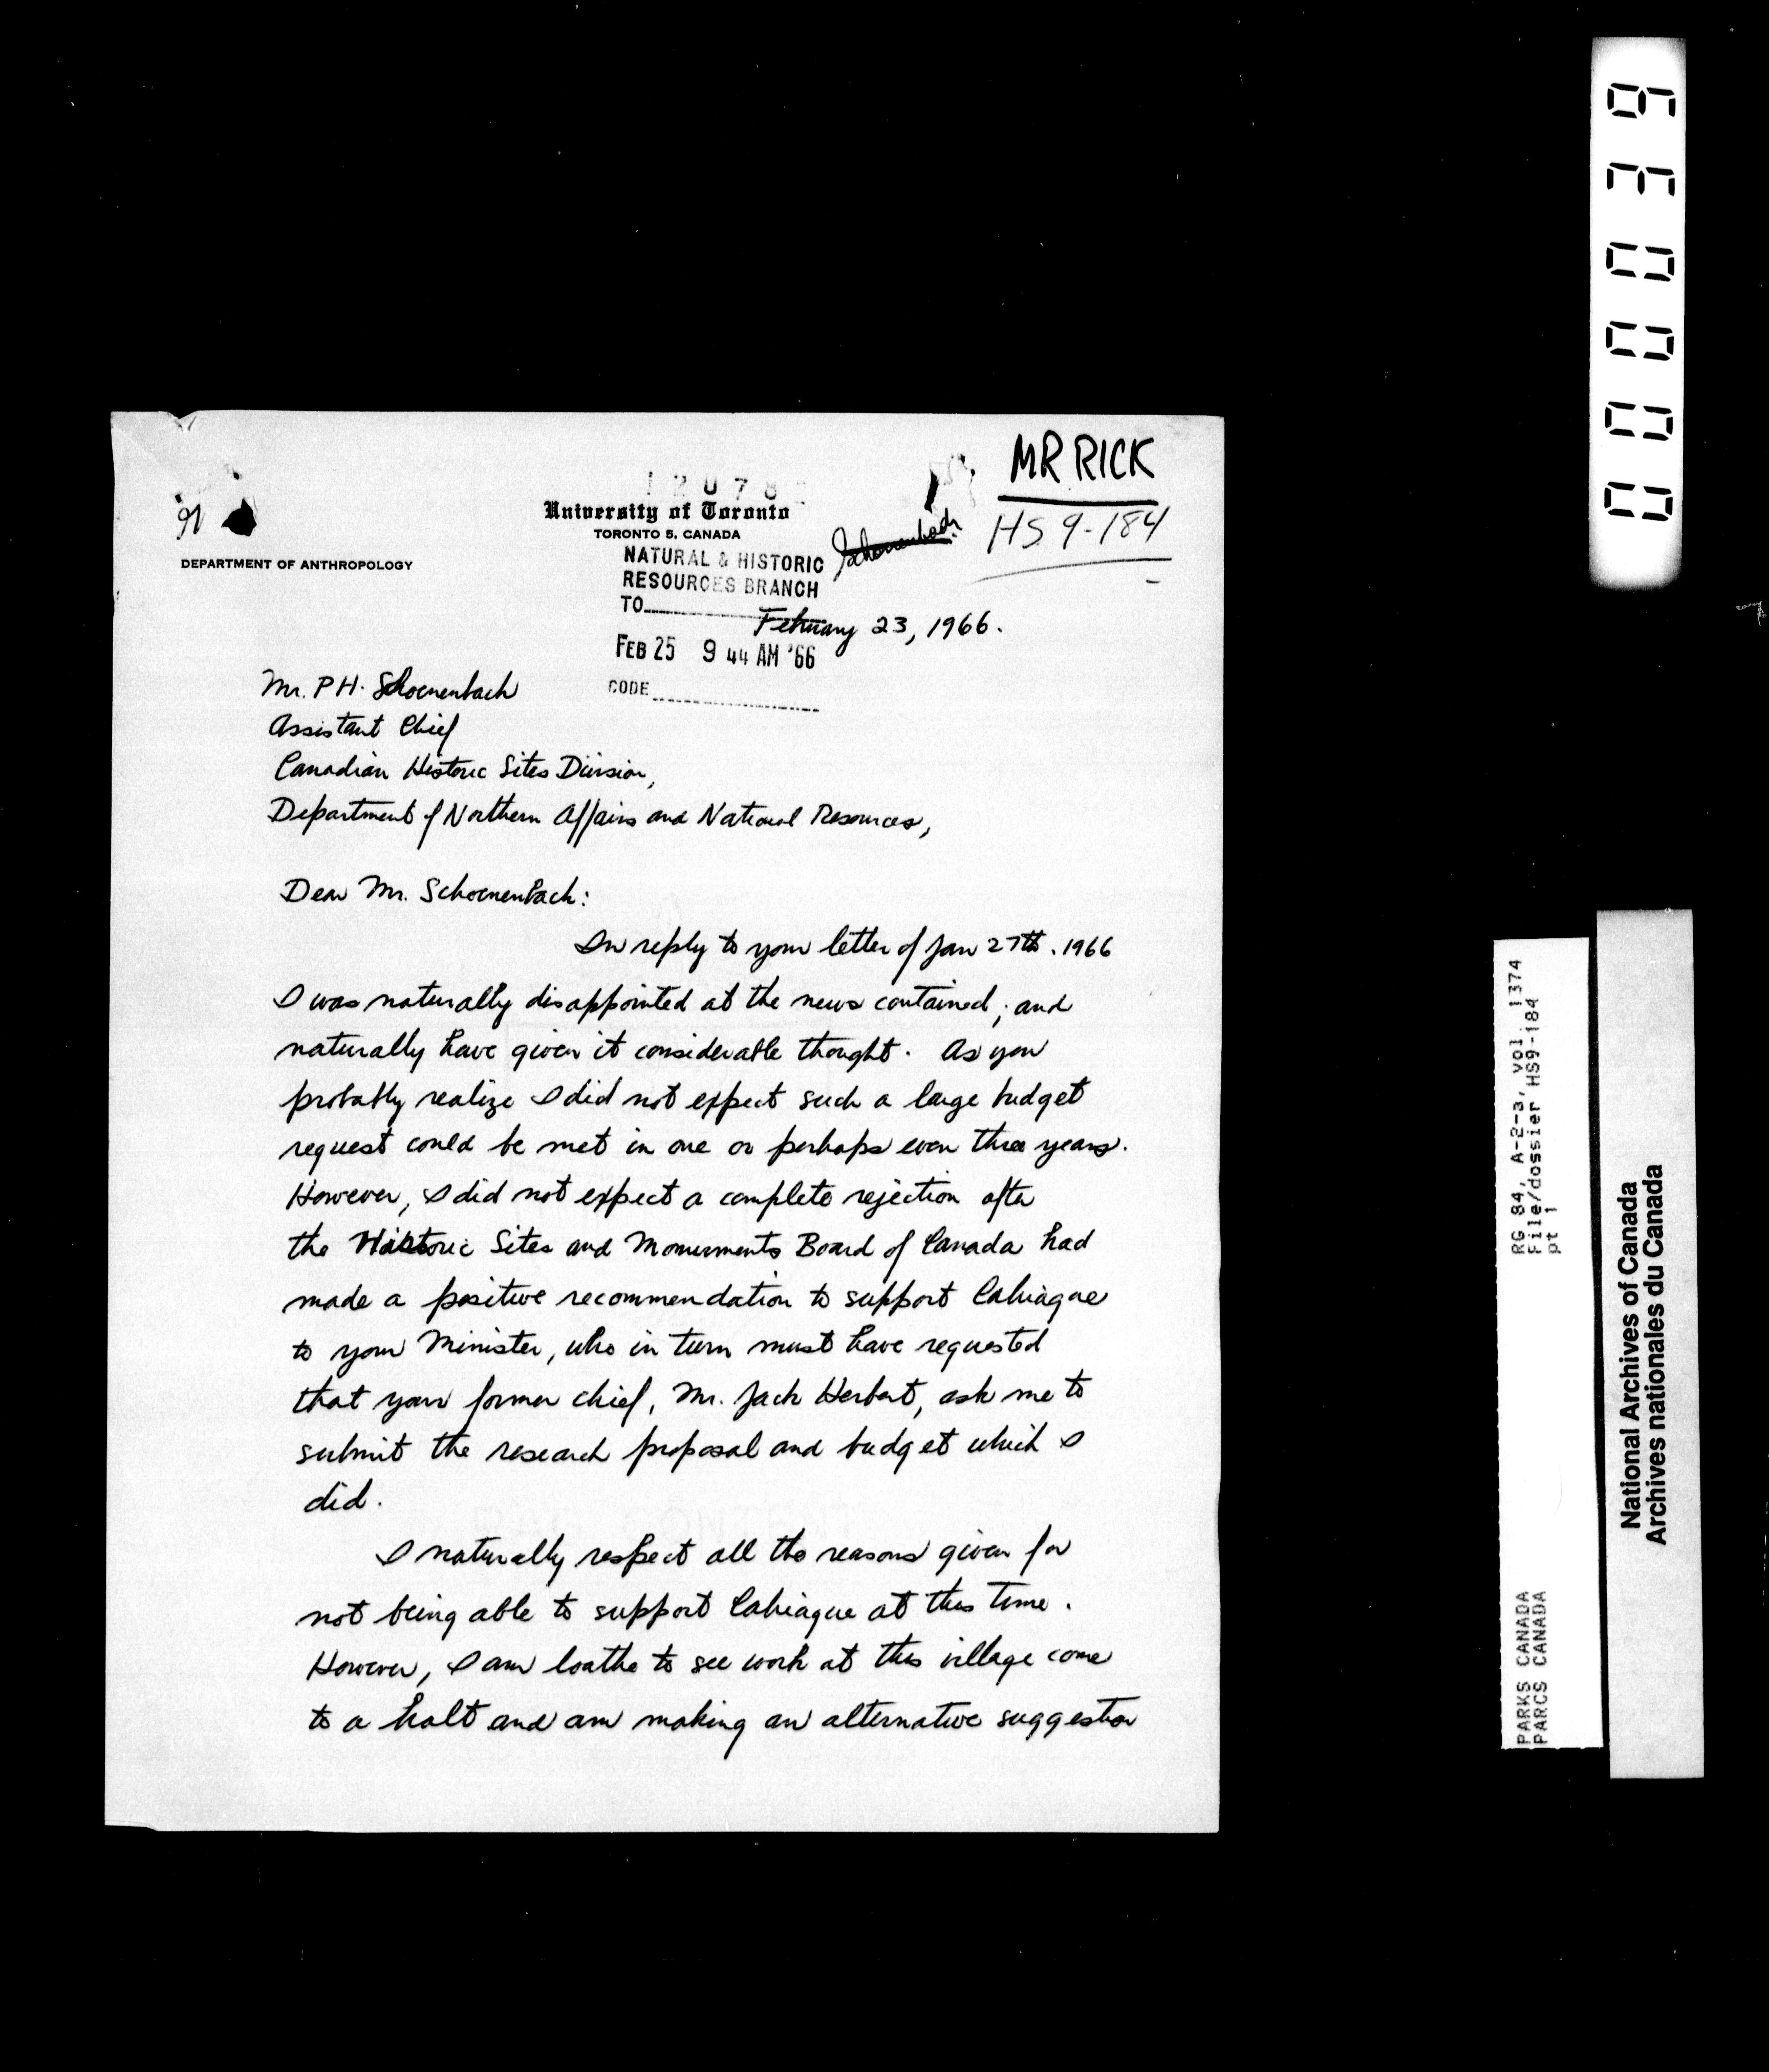 MR RICK
HS 9-184
91
1 2 0 7 8
University of Toronto
TORONTO 5, CANADA
Schoenenbach.
DEPARTMENT OF ANTHROPOLOGY
NATURAL & HISTORIC
RESOURCES BRANCH
TO
February 23, 1966.
FEB 25 9 44 AM '66
CODE
Mr. P H. Schoenenbach
Assistant Chief
Canadian Historic Sites Division,
Department of Northern Affairs and National Resources,
Dear Mr. Schoenenbach:
In reply to your letter of Jan 27th. 1966
I was naturally disappointed at the news contained; and
naturally have given it considerable thought. As you
probably realize I did not expect such a large budget
request could be met in one or perhaps even three years.
However, I did not expect a complete rejection after
the Historic Sites and Monuments Board of Canada had
made a positive recommendation to support Cahiague
to your Minister, who in turn must have requested
that your former chief, Mr. Jack Herbert, ask me to
submit the research proposal and budget which I
did.
I naturally respect all the reasons given for
not being able to support Cahiague at this time.
However, I am loathe to see work at this village come
to a halt and am making an alternative suggestion
RG 84, A-2-a, vol. 1374
File/dossier HS9-184
pt 1
PARKS CANADA
PARCS CANADA
National Archives of Canada
Archives nationales du Canada